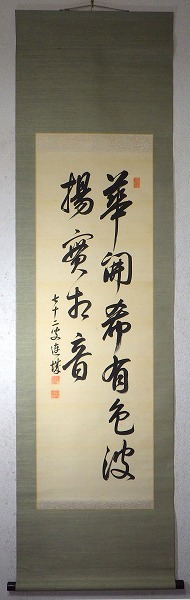 華開希有色波
揚實相音
七十二叟連城